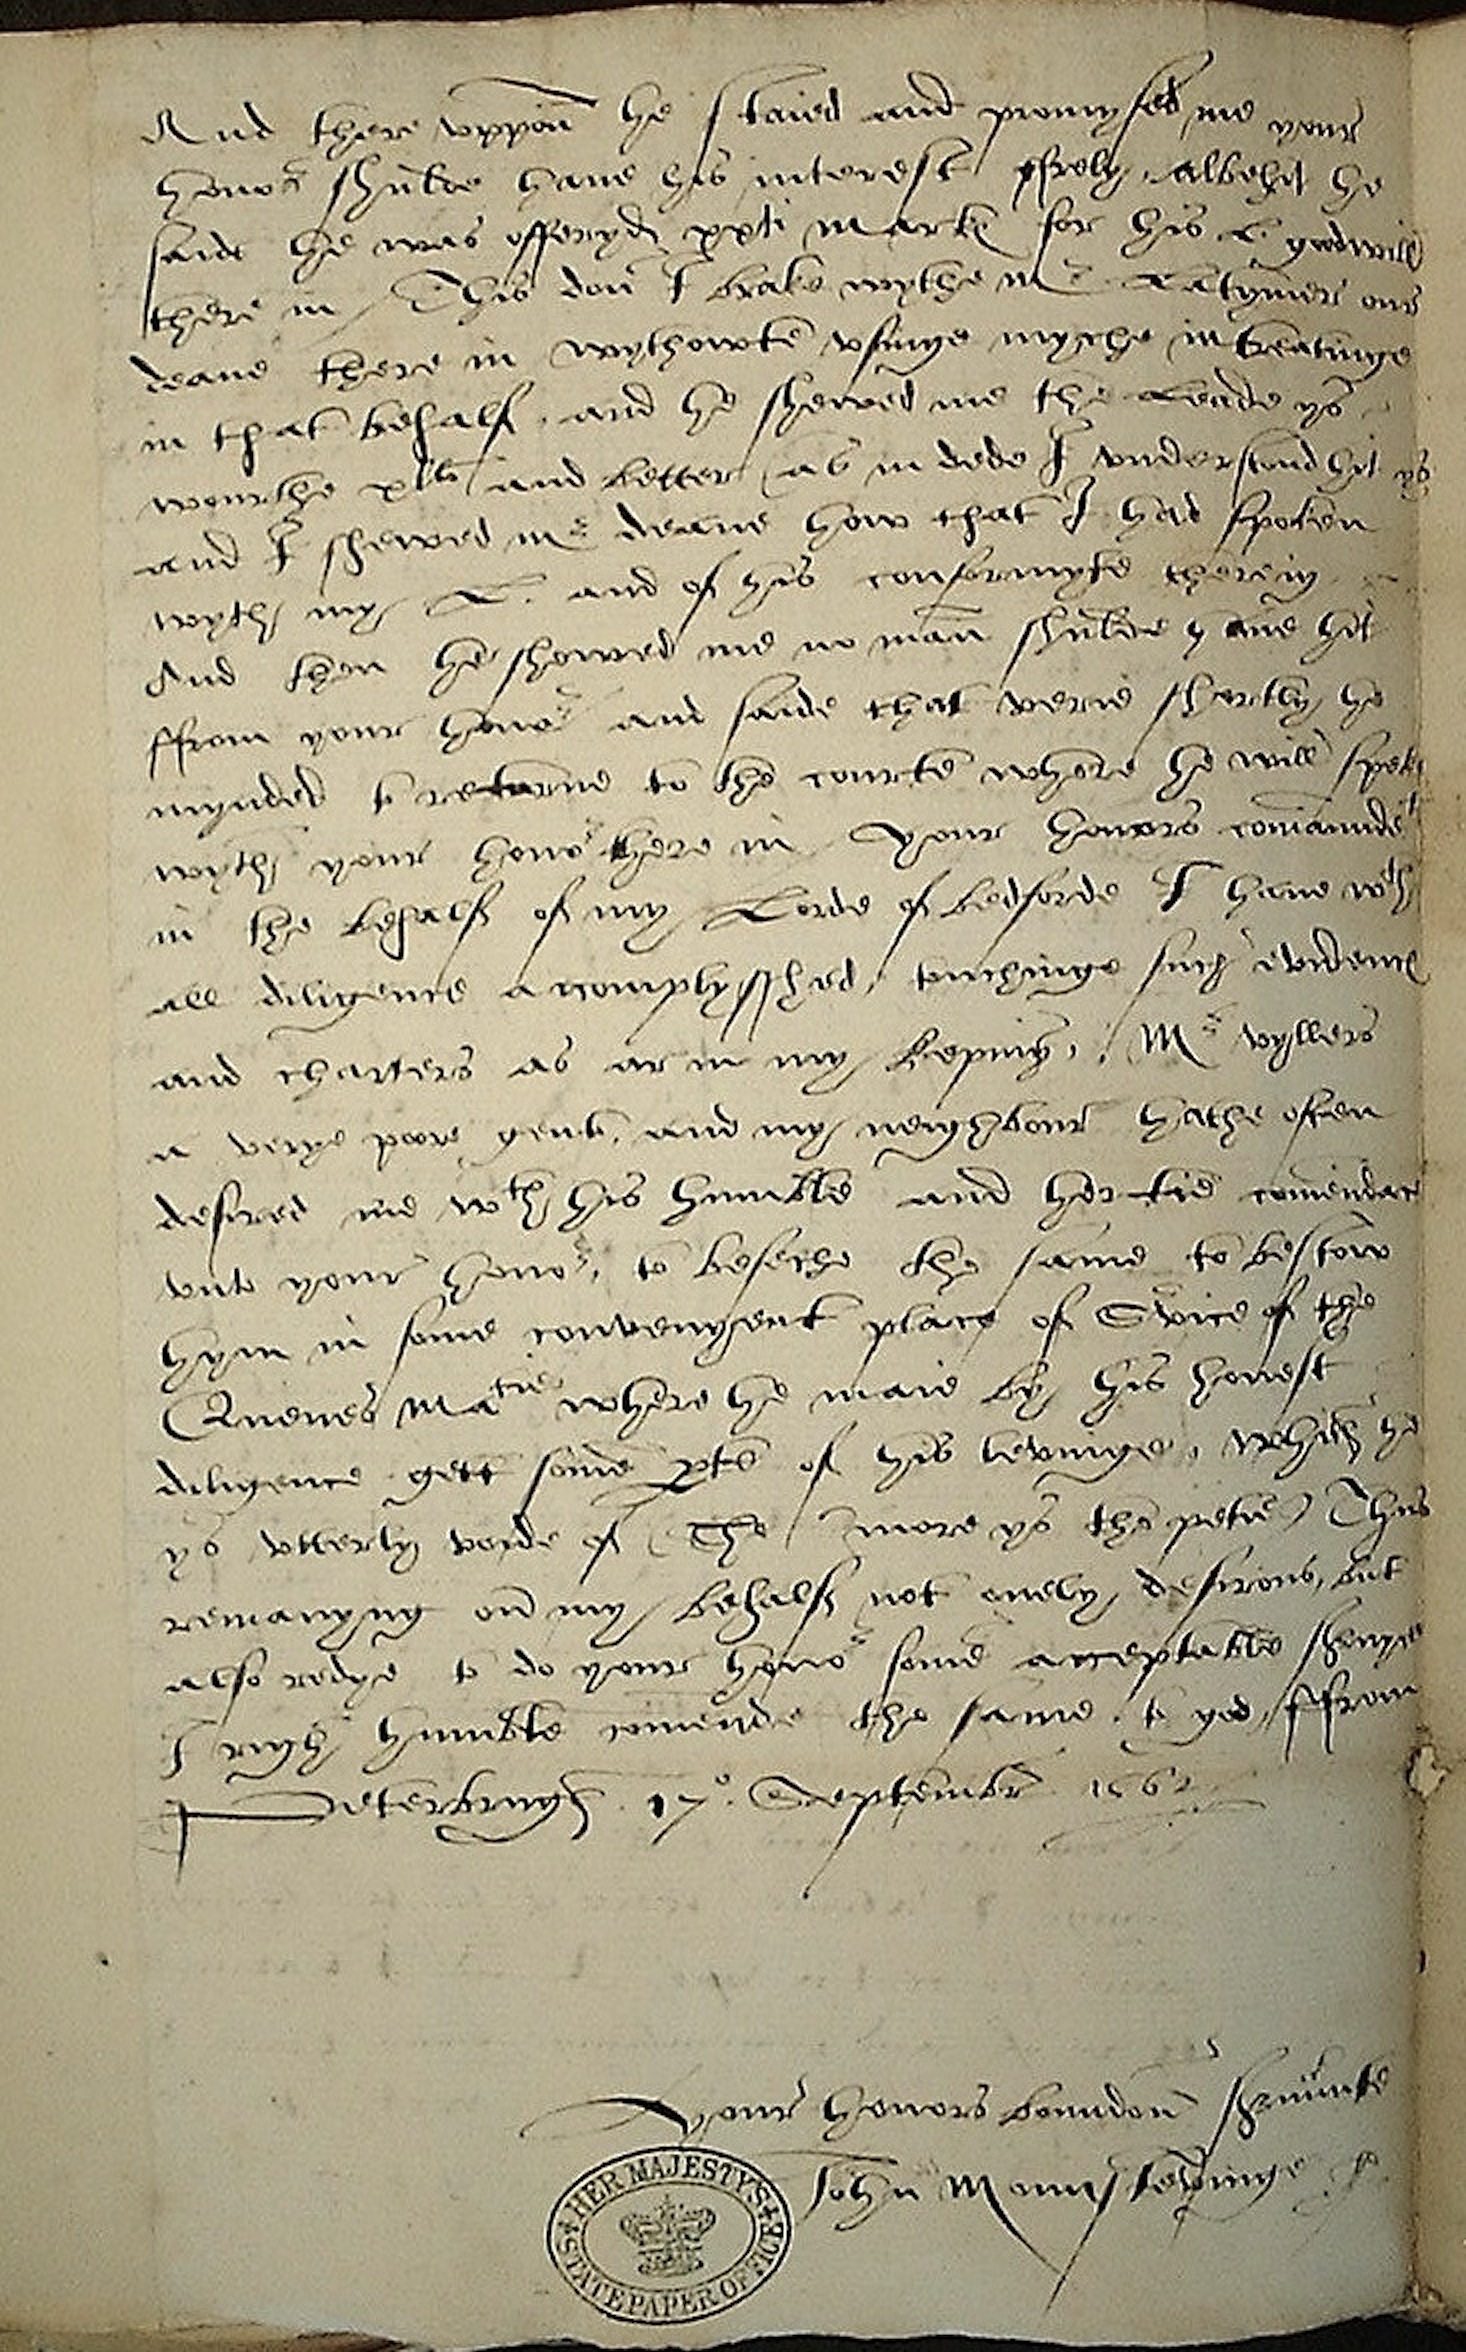 And there vppon he staied and promysed me your
honor shulde have his interest ffrely, albehit he
saide he was offeryd xxti markes for his L. goodwill
there in / This don I brake wythe Mr Latymer our
deane there in wythowte vsinge myche intreatinge
in that behalf, and he shewed me the Leade ys
wourthe xlli and better (as in dede I vnderstand hit ys
and I shewed Mr deane how that I had spoken
wyth my L. and of his conformyte therein
And then he showed me no man shulde have hit
ffrom your honor and saide that verie shortly he
mynded to returne to the courte where he will speke
wyth your honor there in / Your honors comaundet
in the behalf of my Lorde of bedforde I have wth
all diligence accomplysshed, touchinge such evidences
and charters as ar in my kepinge, Mr vyllers
a verye poore gent. and my neighbour hathe often
desired me wth his humble and hertie comendac
vnto your honor, to beseche the same to bestow
hym in some convenyent place of Svice of the
Quenes Matie where he maie by his honest
diligence gett some pte of his levinge, which he
ys vtterly voide of (The more ys the petie) Thus
remanyng on my behalf not onely desirous, but
also redye to do your honor some acceptable servyce
I righ humble comende the same to god, ffrom
Peterbrugh 17o Septembr 1562
Your honors boundon servnte
John Mounstevinge
HER MAJESTY'S STATE PAPER OFFICE